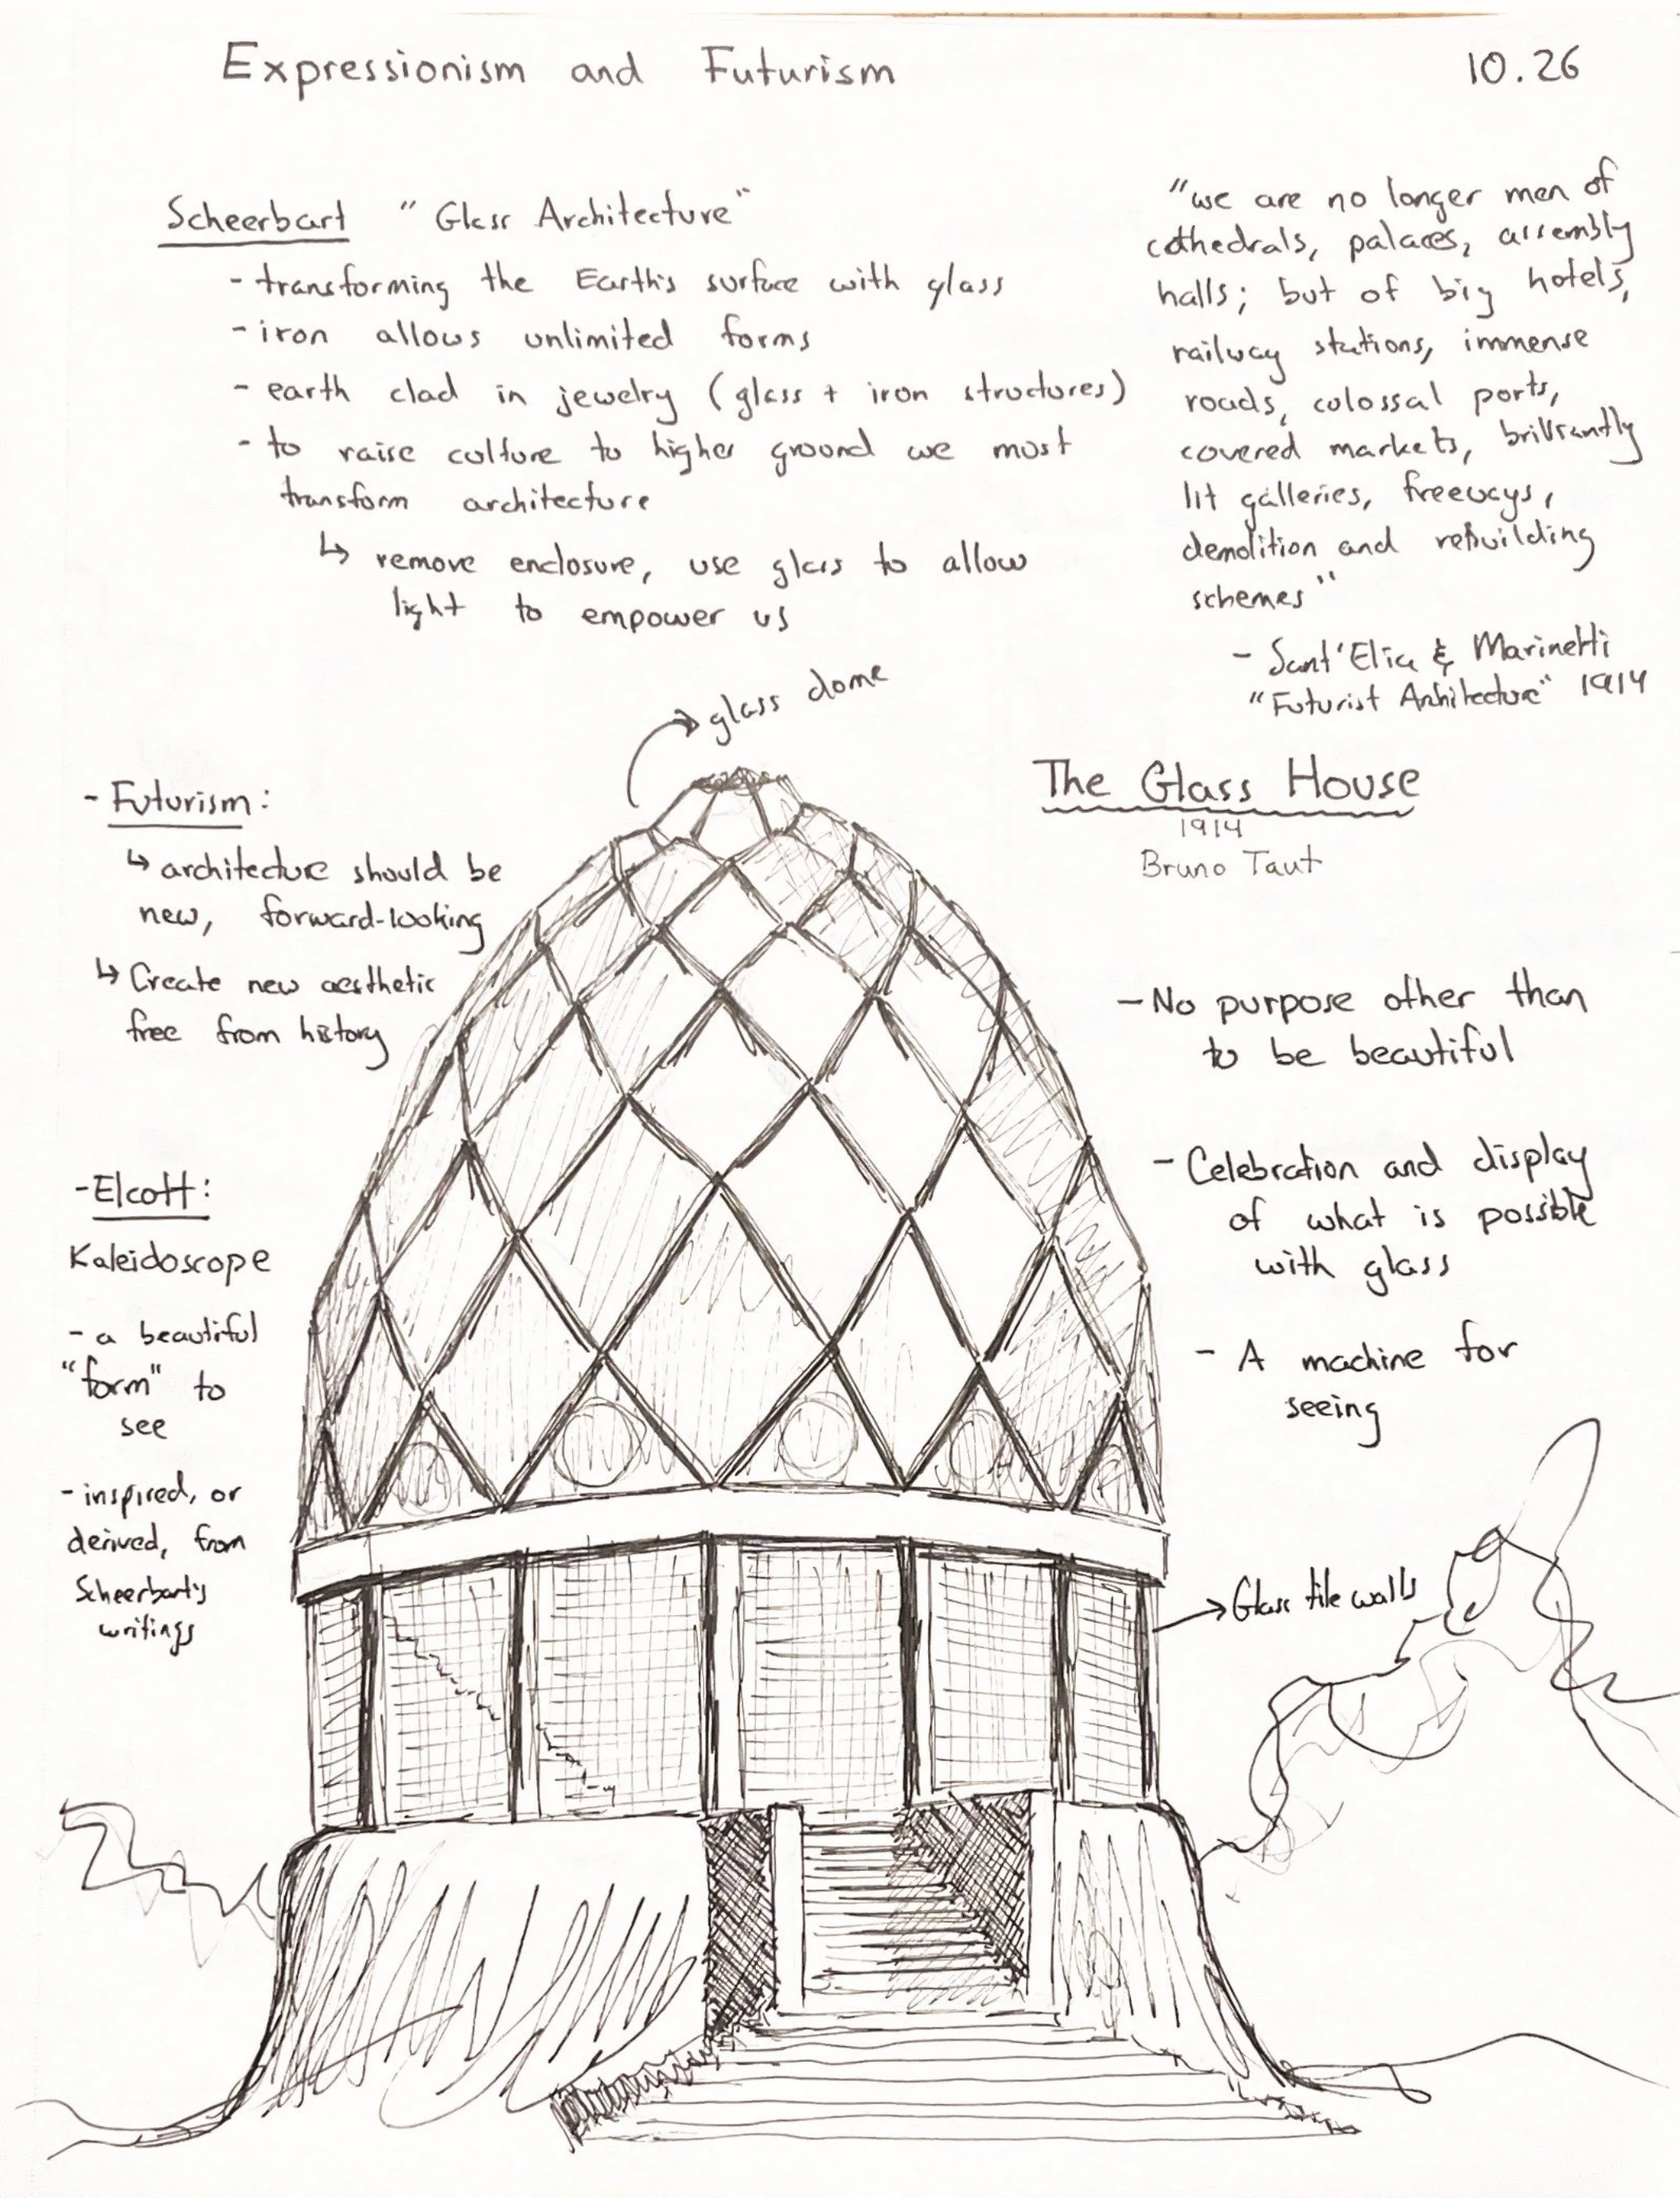 Expressionism and Futurism
10.26
Scheerbart "Glass Architecture"
- transforming the Earth's surface with glass
- iron allows unlimited forms
- earth clad in jewelry (glass + iron structures)
- to raise culture to higher ground we must
transform architecture
↳ remove enclosure, use glass to allow
light to empower us
"we are no longer men of
cathedrals, palaces, assembly
halls; but of big hotels,
railway stations, immense
roads, colossal ports,
covered markets, brilliantly
lit galleries, freeways,
demolition and rebuilding
schemes"
- Sant'Elia & Marinetti
"Futurist Architecture" 1914
glass dome
- Futurism:
↳ architecture should be
new, forward-looking
↳ Create new aesthetic
free from history
- Elcott:
Kaleidoscope
- a beautiful
"form" to
see
- inspired, or
derived, from
Scheerbart's
writings
The Glass House
1914
Bruno Taut
- No purpose other than
to be beautiful
- Celebration and display
of what is possible
with glass
- A machine for
seeing
Glass tile walls